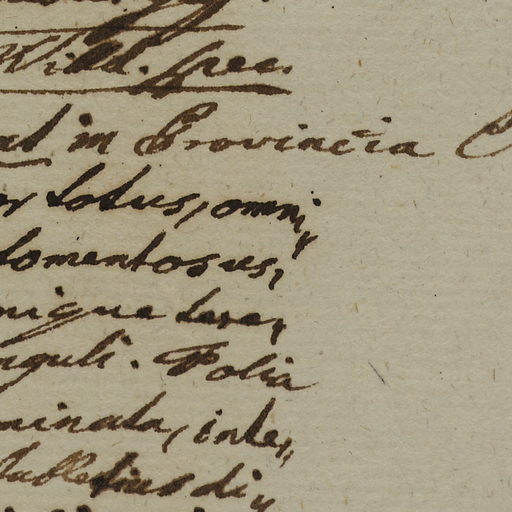 Willd. spec.
in Provincia
totus, omni,
tomentosus,
nique tere,
nguli. Folia
minata, inte,
di,